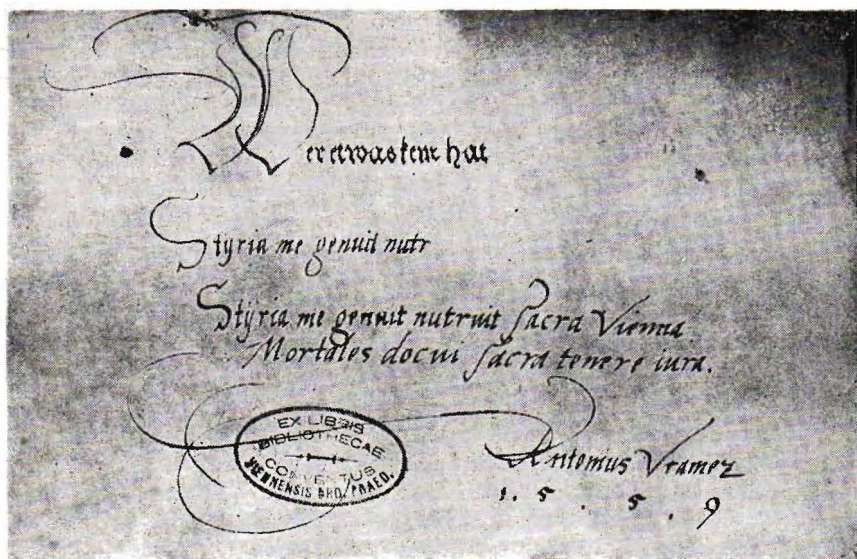 Wer etwas kent hat
Styria me genuit nutr
Styria me genuit nutruit sacra Vienna
Mortales docui sacra tenere iura.
EX LIBRIS
BIBLIOTHECAE
CONVENTUS
VIENNENSIS ORD. PRAED.
Antonius Vramez
1. 5 . 5 . 9